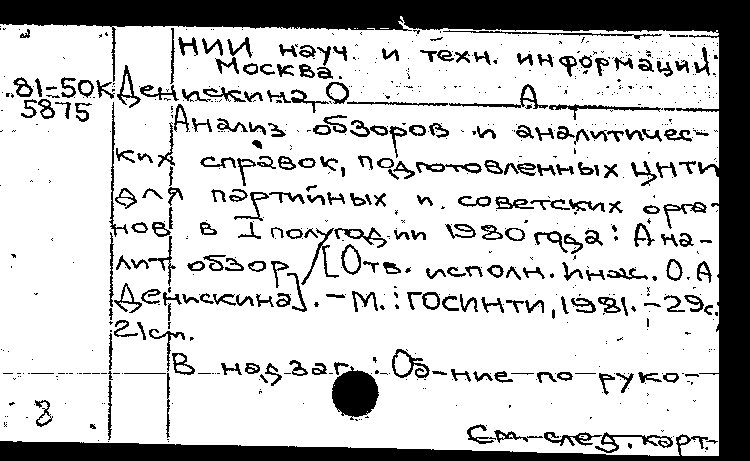 НИИ науч. и техн. информации.
Москва.
81-50К Денискина, О А
5875
Анализ обзоров и аналитичес-
ких справок, подготовленных ЦНТИ
для партийных и советских орга-
нов в I полугодии 1980 года: Ана-
лит. обзор / [Отв. исполн. инж. О.А.
Денискина]. - М.: ГОСИНТИ, 1981. - 29с.
21cm.
В надзаг.: Об-ние по руко-
8
См. след. карт.